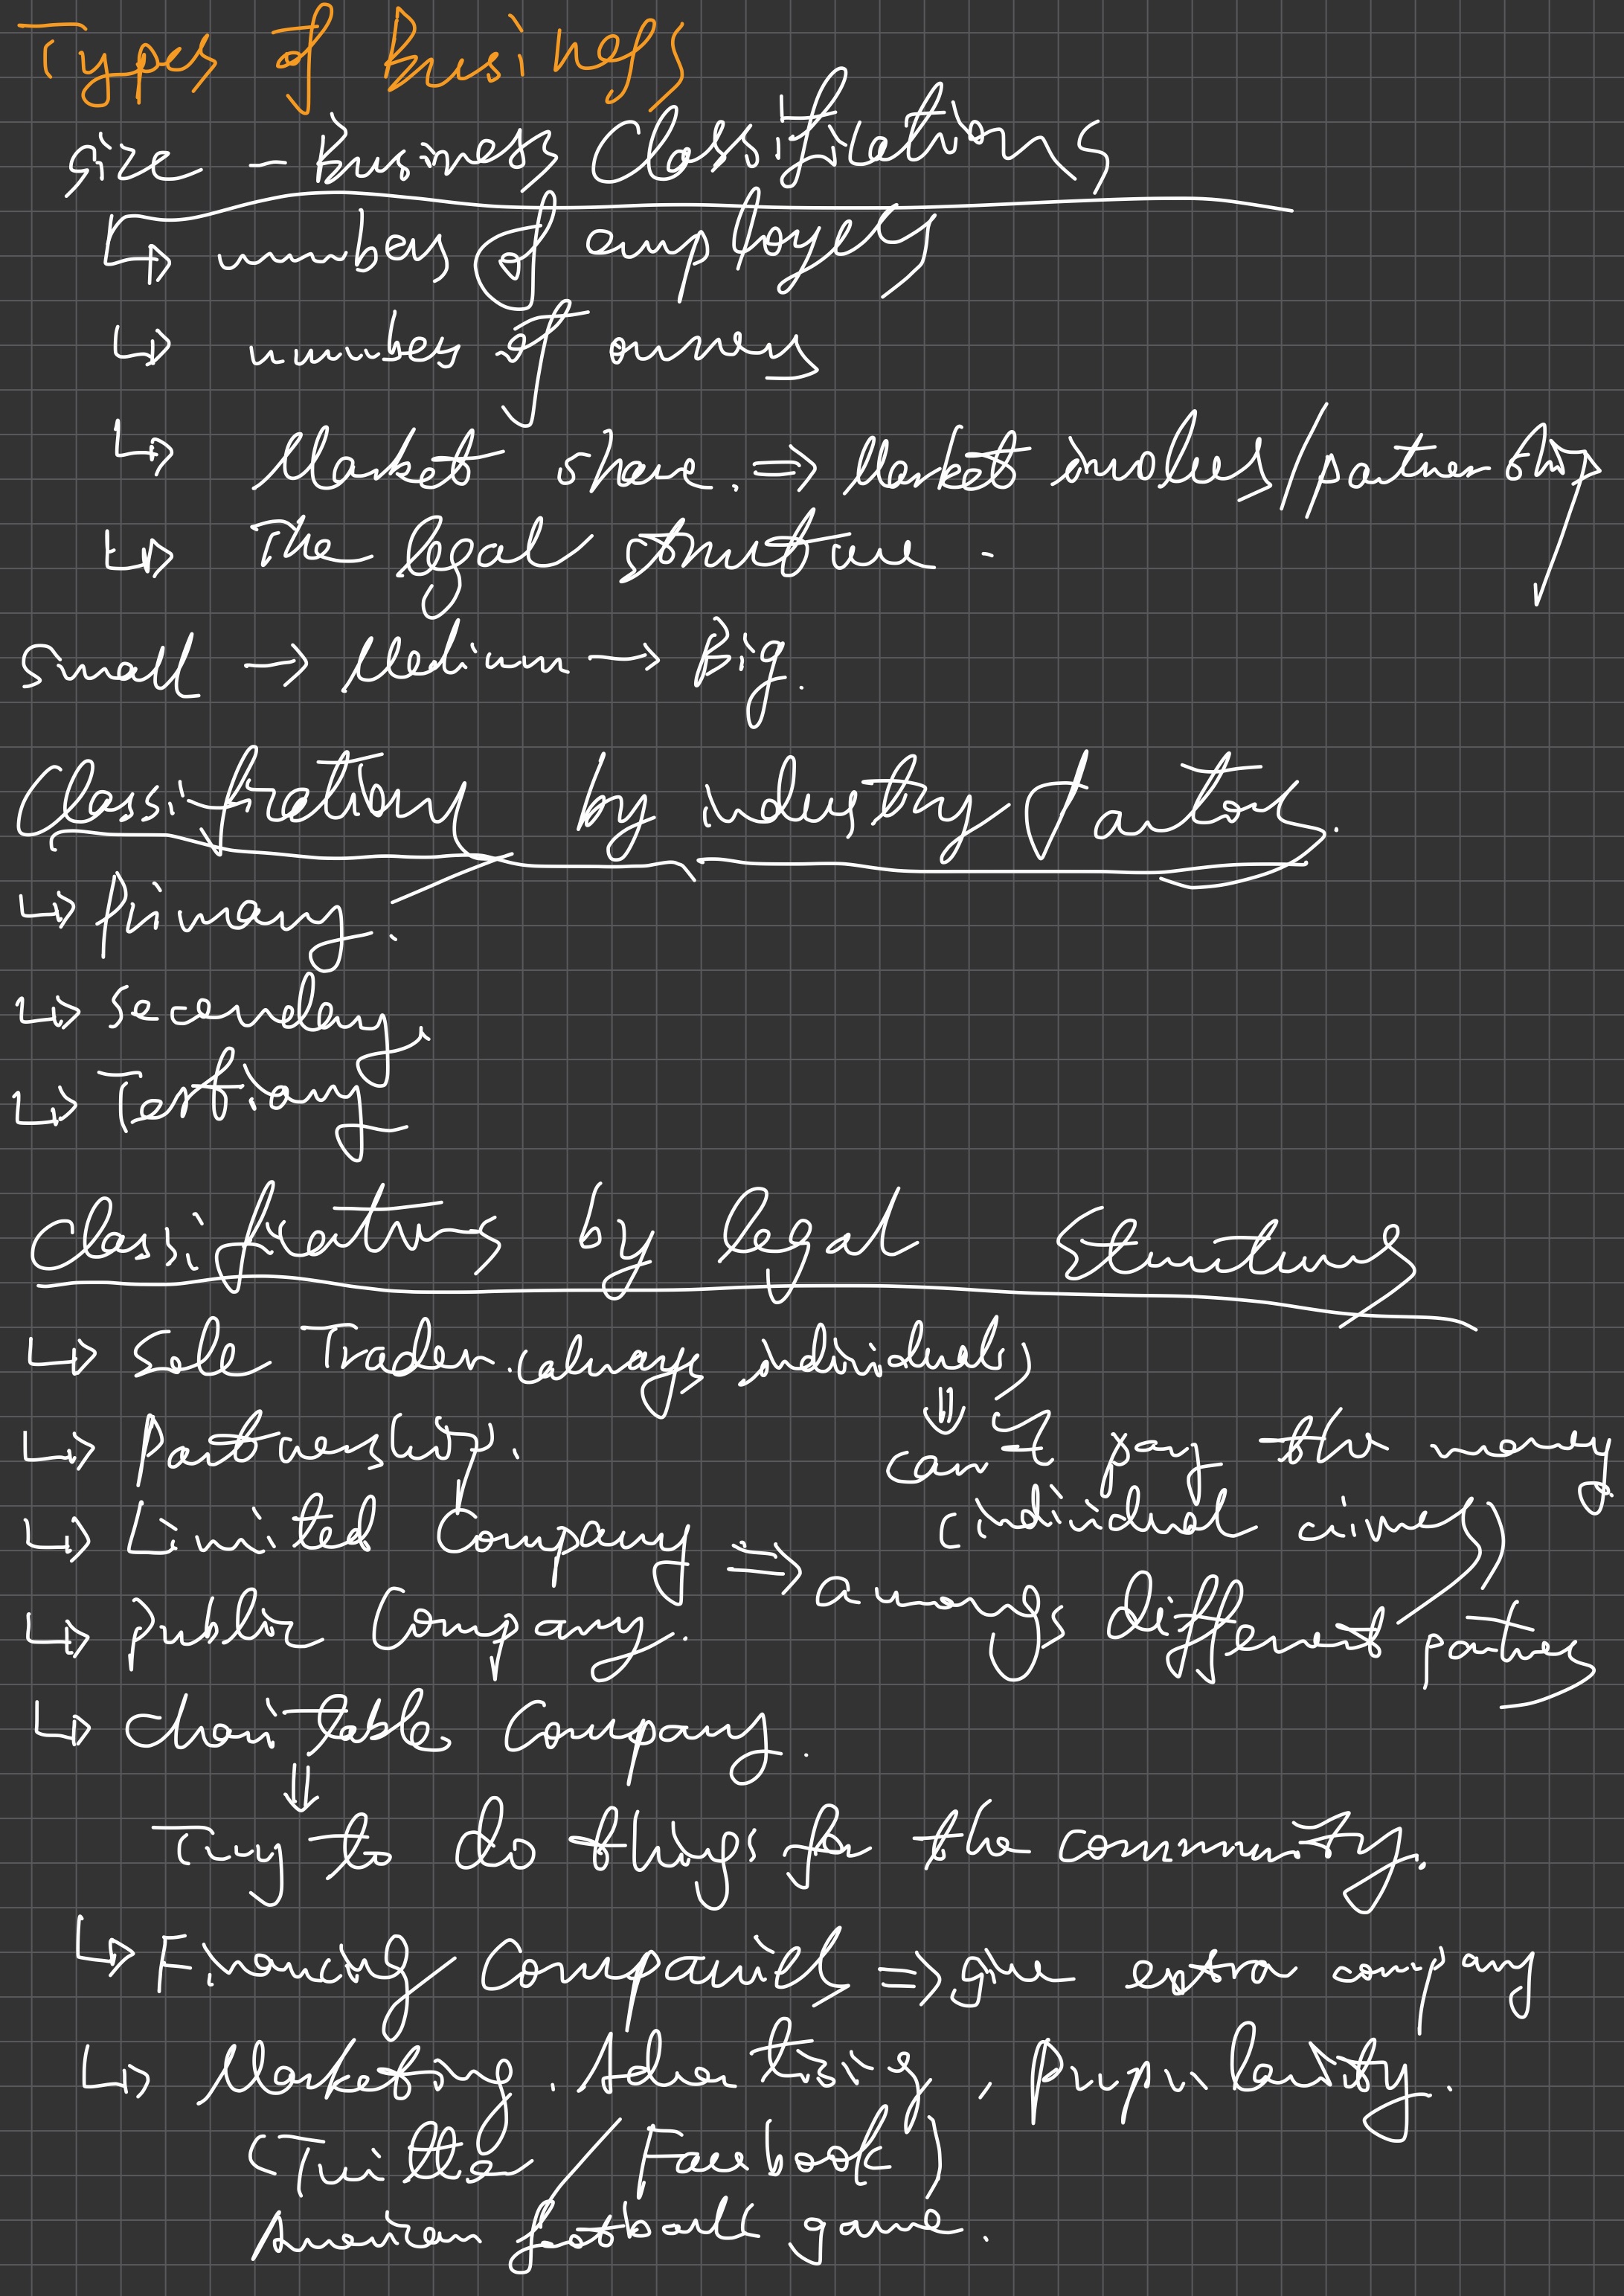 Types of Business
size - Business Classifications
↳ numbers of employees
↳ numbers of owners
↳ Market share. ⇒ Market involves/partnership
↳ The legal structure.
Small → Medium → Big.
Classification by industry factor.
↳ Primary.
↳ secondary.
↳ Tertiary
Classifications by legal Structures
↳ Sole Trader. (always individuals)
⇓
↳ Partnership. can't pay the money
(individual crimes)
↳ Limited Company ⇒ amongs different parties
↳ Public Company.
↳ charitable Company.
⇓
Try to do things for the community.
↳ Financing Companies ⇒ give extra company
↳ Marketing. Advertising, Popularity.
(Twitter / Facebook)
American football game.